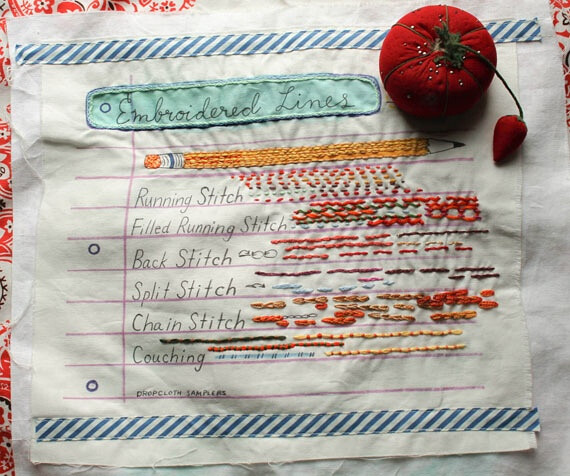 Embroidered Lines
Running Stitch
Filled Running Stitch
Back Stitch
Split Stitch
Chain Stitch
Couching
DROPCLOTH SAMPLERS